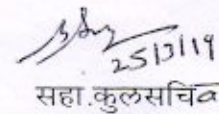 25/3/19
सहा.कुलसचिव